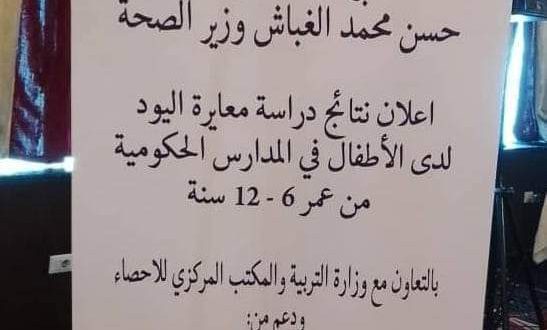 حسن محمد الغباش وزير الصحة
اعلان نتائج دراسة معايرة اليود
لدى الأطفال في المدارس الحكومية
من عمر 6 - 12 سنة
بالتعاون مع وزارة التربية والمكتب المركزي للاحصاء
ودعم من: